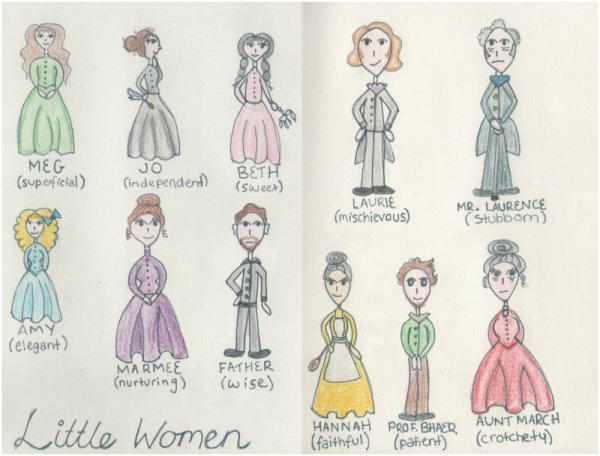 MEG
(superficial)
JO
(independent)
BETH
(sweet)
AMY
(elegant)
MARMEE
(nurturing)
FATHER
(wise)
Little Women
LAURIE
(mischievous)
MR. LAURENCE
(stubborn)
HANNAH
(faithful)
PROF. BHAER
(patient)
AUNT MARCH
(crotchety)